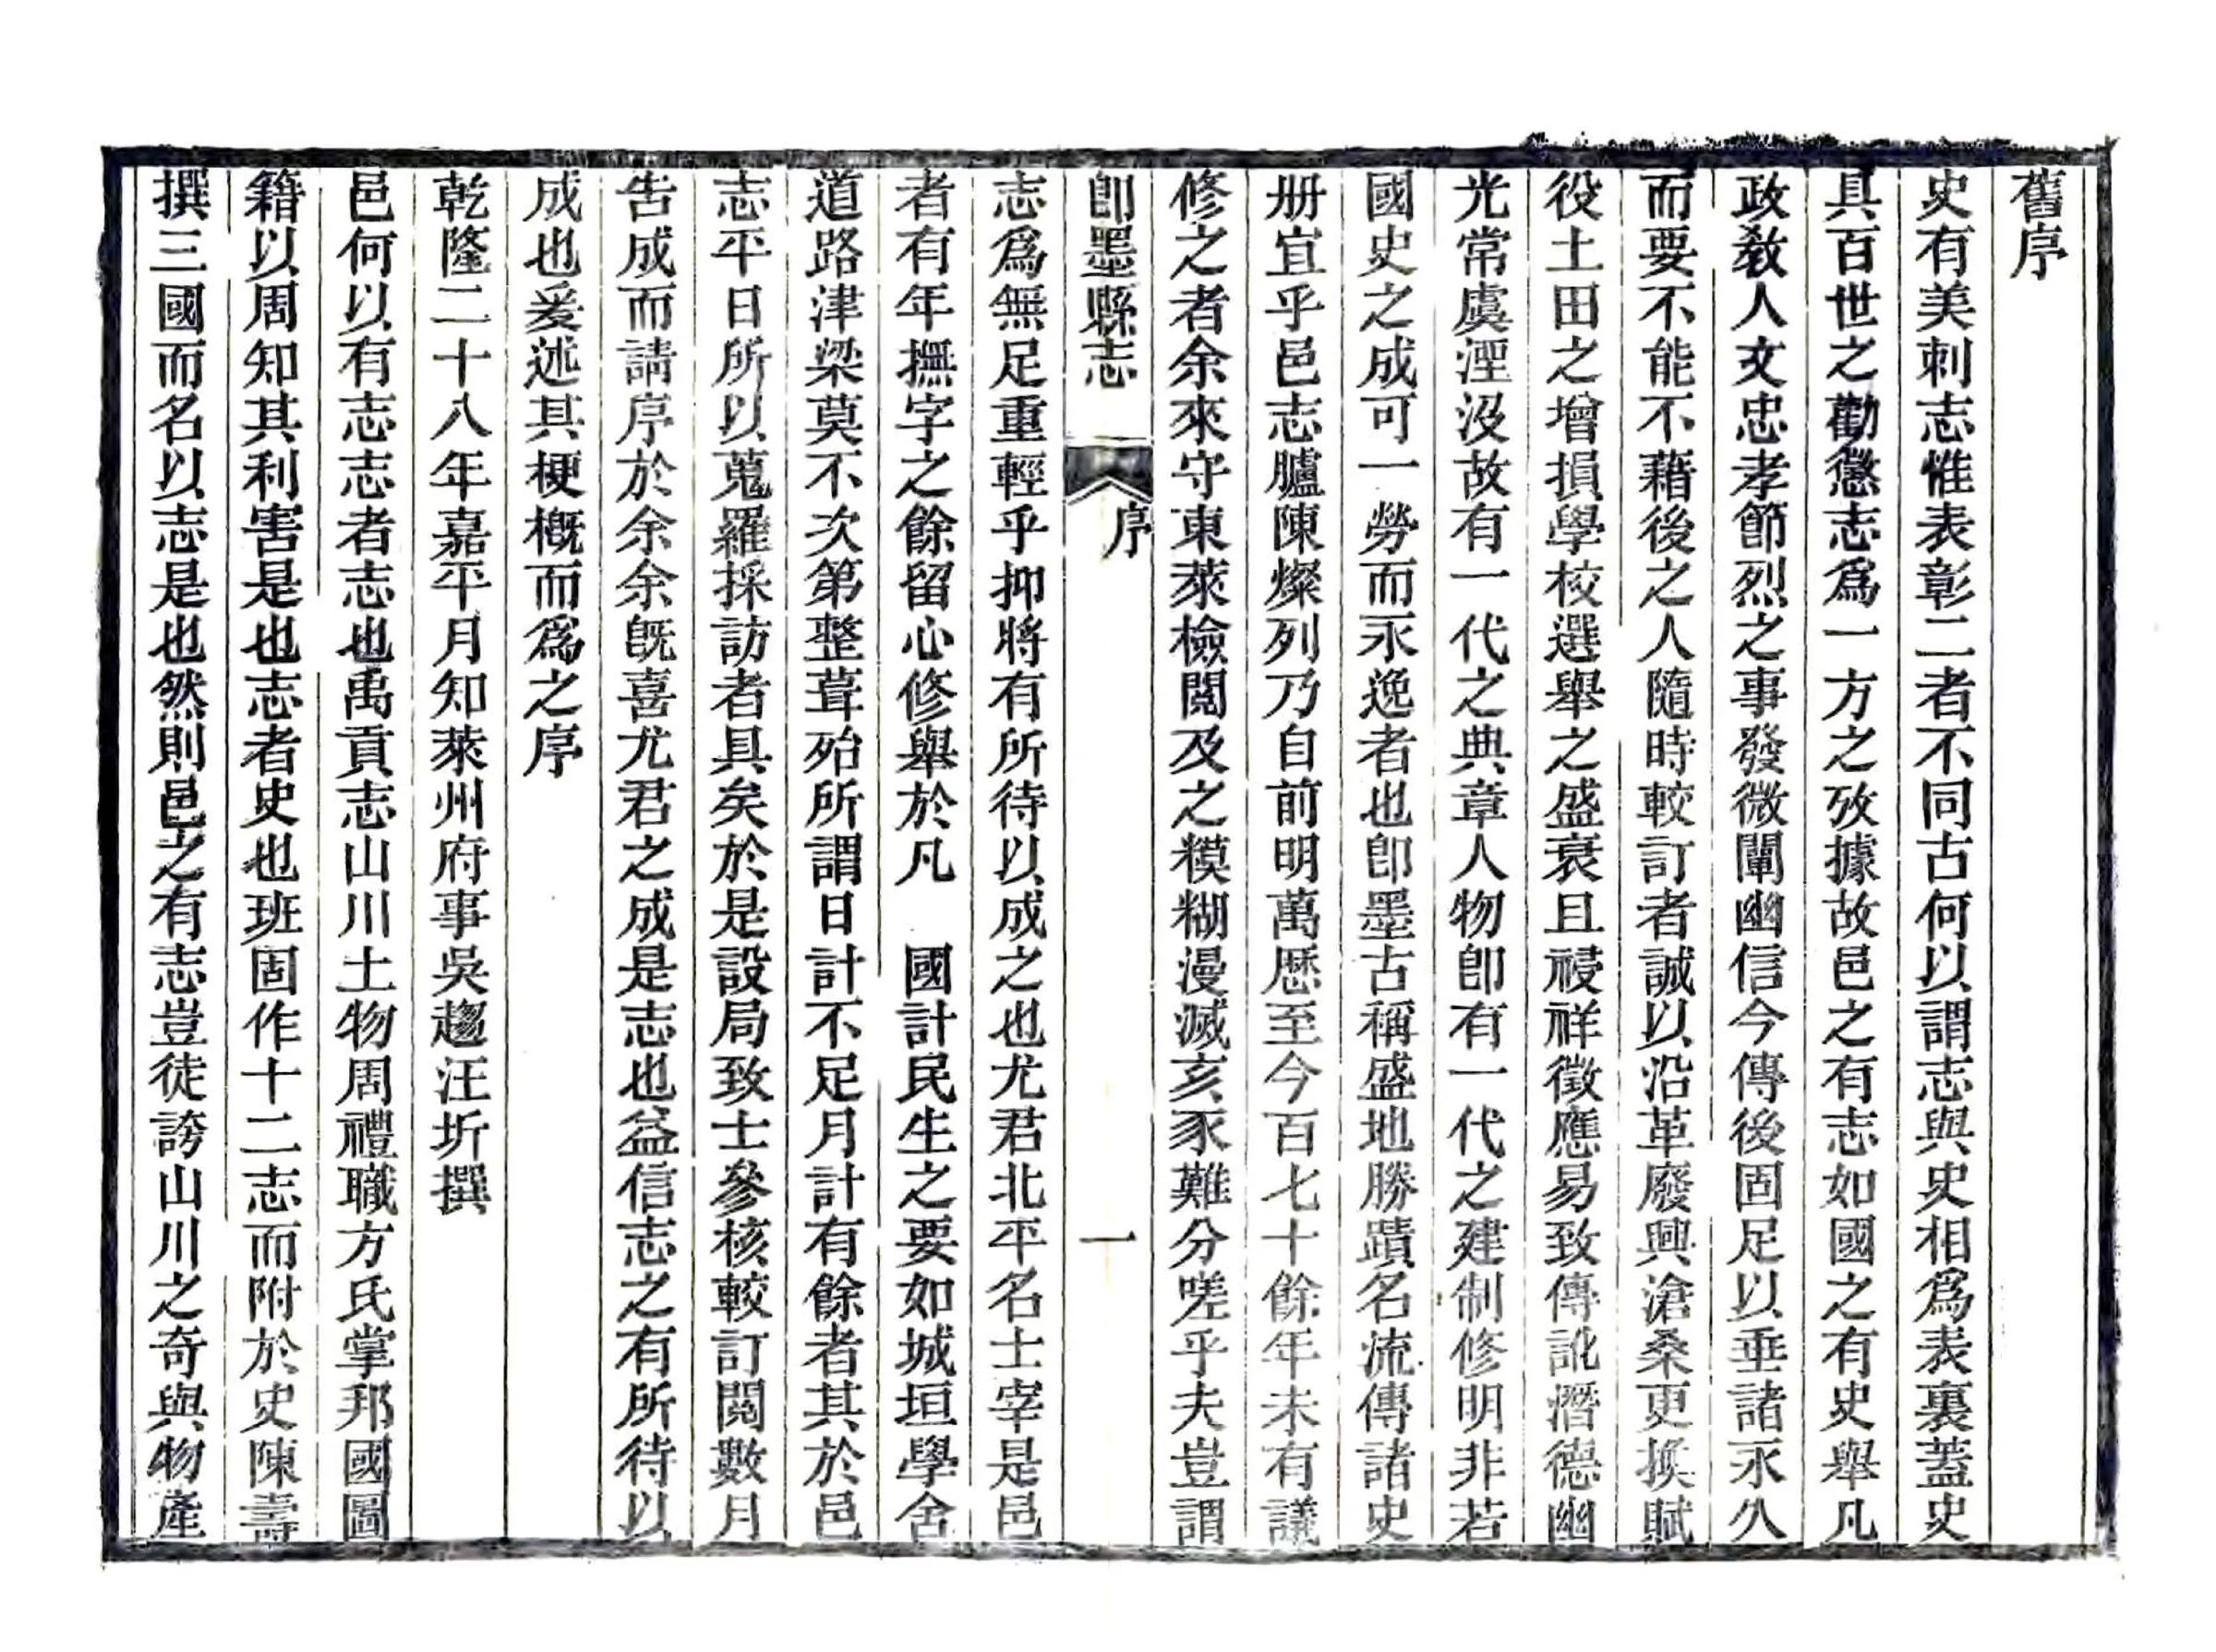 舊序
史有美刺志惟表彰二者不同古何以謂志與史相爲表裏蓋史
具百世之勸懲志爲一方之攷據故邑之有志如國之有史舉凡
政敎人文忠孝節烈之事發微闡幽信今傳後固足以垂諸永久
而要不能不藉後之人隨時較訂者誠以沿革廢興滄桑更換賦
役土田之增損學校選舉之盛衰且祲祥徵應易致傳訛潛德幽
光常虞湮沒故有一代之典章人物卽有一代之建制修明非若
國史之成可一勞而永逸者也卽墨古稱盛地勝蹟名流傳諸史
册宜乎邑志臚陳燦列乃自前明萬歷至今百七十餘年未有議
修之者余來守東萊檢閱及之糢糊漫滅亥豕難分嗟乎夫豈謂
卽墨縣志 序 一
志爲無足重輕乎抑將有所待以成之也尤君北平名士宰是邑
者有年撫字之餘留心修舉於凡 國計民生之要如城垣學舍
道路津梁莫不次第整葺殆所謂日計不足月計有餘者其於邑
志平日所以蒐羅採訪者具矣於是設局致士參核較訂閱數月
告成而請序於余余旣喜尤君之成是志也益信志之有所待以
成也爰述其梗槪而爲之序
乾隆二十八年嘉平月知萊州府事吳趨汪圻撰
邑何以有志志者志也禹貢志山川土物周禮職方氏掌邦國圖
籍以周知其利害是也志者史也班固作十二志而附於史陳壽
撰三國而名以志是也然則邑之有志豈徒誇山川之奇與物產